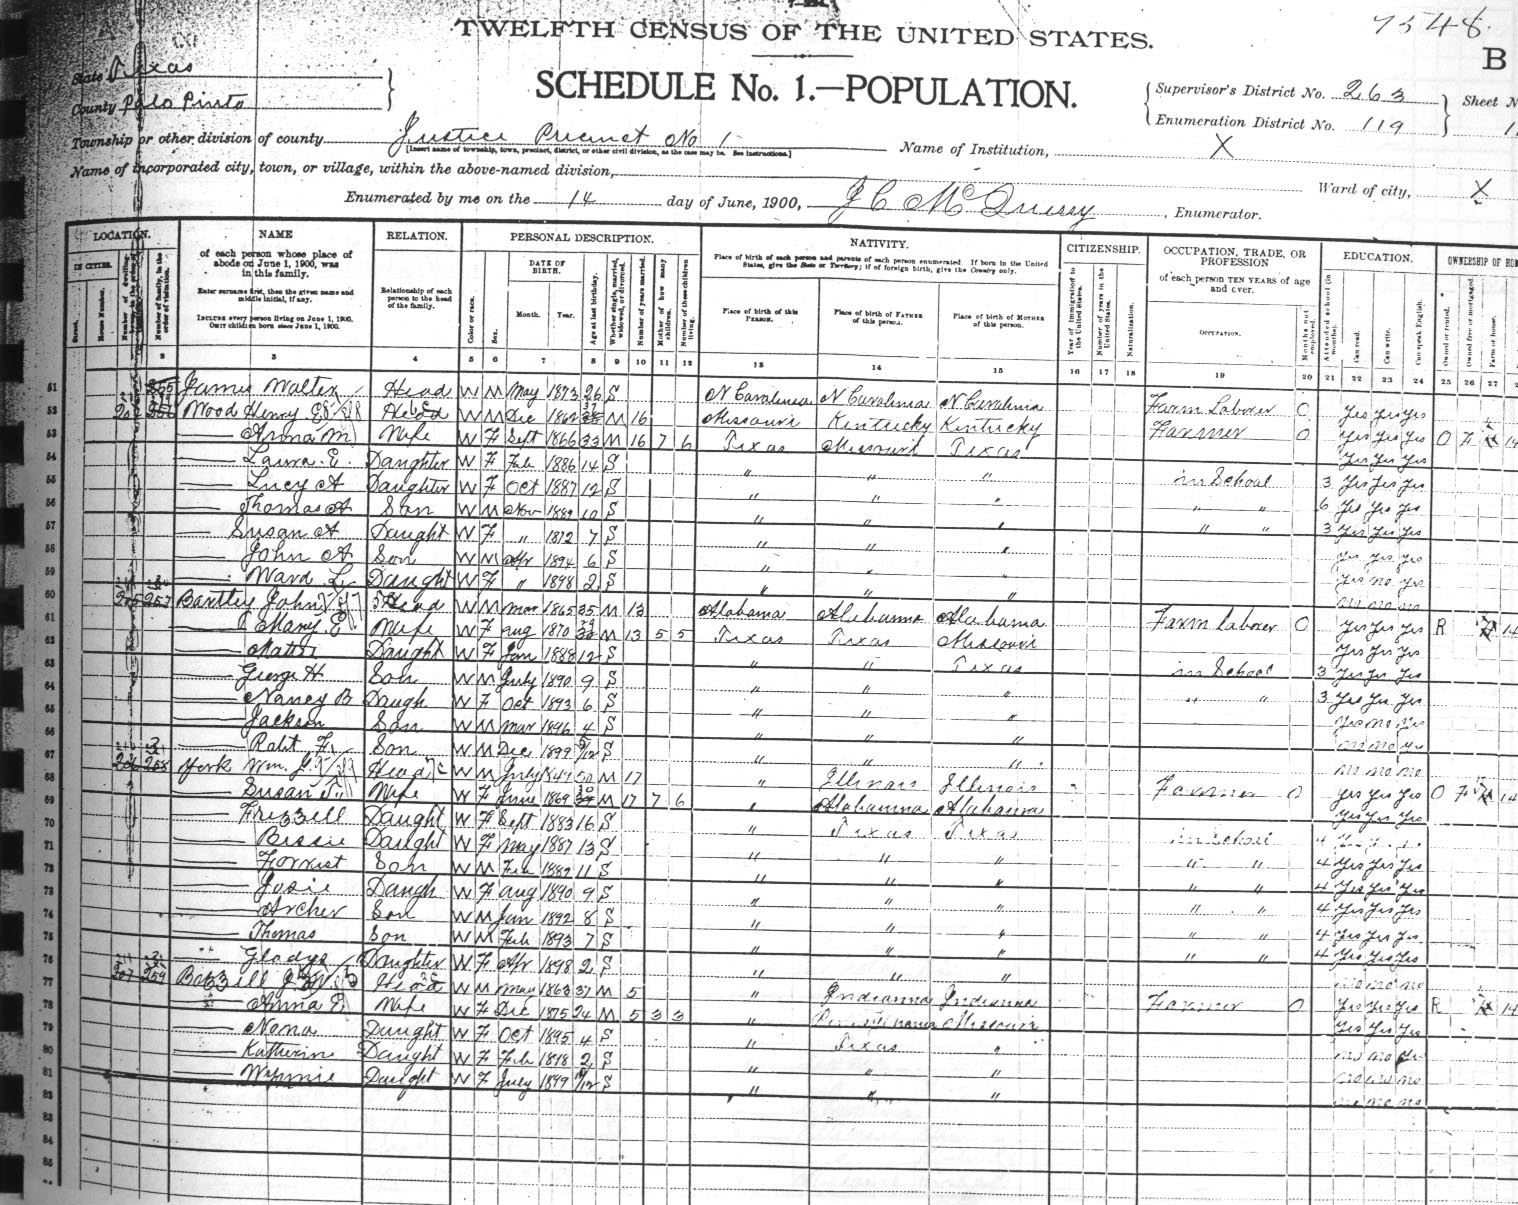 7548
TWELFTH CENSUS OF THE UNITED STATES.
B
State Texas
County Palo Pinto
SCHEDULE No. 1.—POPULATION.
Supervisor's District No. 263
Enumeration District No. 119
Sheet N
Township or other division of county Justice Precinct No 1
[Insert name of township, town, precinct, district, or other civil division, as the case may be. See instructions.]
Name of Institution, X
Name of incorporated city, town, or village, within the above-named division,
Ward of city, X
Enumerated by me on the 14 day of June, 1900, J C McQuerry, Enumerator.
LOCATION. NAME RELATION. PERSONAL DESCRIPTION. NATIVITY. CITIZENSHIP. OCCUPATION, TRADE, OR PROFESSION EDUCATION. OWNERSHIP OF HOM
IN CITIES.
Street.
House Number.
Number of family, in the order of visitation.
of each person whose place of abode on June 1, 1900, was in this family.
Enter surname first, then the given name and middle initial, if any.
INCLUDE every person living on June 1, 1900.
OMIT children born since June 1, 1900.
Relationship of each person to the head of the family.
Color or race.
Sex.
DATE OF BIRTH.
Month. Year.
Age at last birthday.
Whether single, married, widowed, or divorced.
Number of years married.
Mother of how many children.
Number of these children living.
Place of birth of each person and parents of each person enumerated. If born in the United States, give the State or Territory; if of foreign birth, give the Country only.
Place of birth of this PERSON.
Place of birth of FATHER of this person.
Place of birth of MOTHER of this person.
Year of immigration to the United States.
Number of years in the United States.
Naturalization.
of each person TEN YEARS of age and over.
OCCUPATION.
Months not employed.
Attended school (in months).
Can read.
Can write.
Can speak English.
Owned or rented.
Owned free or mortgaged.
Farm or house.
2 3 4 5 6 7 8 9 10 11 12 13 14 15 16 17 18 19 20 21 22 23 24 25 26 27
51 James Walter Head W M May 1873 26 S N Carolina N Carolina N Carolina Farm Laborer 0 yes yes yes
52 Wood Henry Head W M Dec M 16 Missouri Kentucky Kentucky Farmer 0 yes yes yes O F 14
53 Anna M. Wife W F Sept 1866 33 M 16 7 6 Texas Missouri Texas yes yes yes
54 Laura E. Daughter W F Feb 1886 14 S " " " in School 3 yes yes yes
55 Lucy A Daughter W F Oct 1887 12 S " " " " " 6 yes yes yes
56 Thomas A Son W M Nov 1889 10 S " " " " " 3 yes yes yes
57 Susan A Daught W F " 1892 7 S " " " yes yes yes
58 John A Son W M Apr 1894 6 S " " " yes no yes
59 Ward L. Daught W F " 1898 2 S " " " no no no
60 257 Bartley John Head W M Mar 1865 35 M 13 Alabama Alabama Alabama Farm Laborer 0 yes yes yes R 14
61 Mary E Wife W F Aug 1870 M 13 5 5 Texas Texas Missouri yes yes yes
62 Mattie Daught W F Jan 1888 12 S " " Texas in School 3 yes yes yes
63 George H Son W M July 1890 9 S " " " " " 3 yes yes yes
64 Nancy B Daugh W F Oct 1893 6 S " " " yes no yes
65 Jackson Son W M Mar 1896 4 S " " " no no yes
66 Robt F. Son W M Dec 1899 5/12 S " " " no no no
67 258 York Wm. J. Head W M July 1849 50 M 17 " Illinois Illinois Farmer 0 yes yes yes O F 14
68 Susan J. Wife W F June 1869 M 17 7 6 " Alabama Alabama yes yes yes
69 Frizzell Daught W F Sept 1883 16 S " Texas Texas in School 4
70 Bessie Daught W F May 1887 13 S " " " " " 4 yes yes yes
71 Forrest Son W M Feb 1889 11 S " " " " " 4 yes yes yes
72 Josie Daugh W F Aug 1890 9 S " " " " " 4 yes yes yes
73 Archer Son W M Jan 1892 8 S " " " " " 4 yes yes yes
74 Thomas Son W M Feb 1893 7 S " " " " " 4 yes yes yes
75 Gladys Daughter W F Apr 1898 2 S " " " no no no
76 259 Bazzell Head W M May 1863 37 M 5 " Indianna Indianna Farmer 0 yes yes yes R 14
77 Anna E. Wife W F Dec 1875 24 M 5 3 3 " Missouri yes yes yes
78 Nona Daught W F Oct 1895 4 S " Texas " no no
79 Katherine Daught W F Feb 1898 2 S " " " no no no
80 Winnie Daught W F July 1899 10/12 S " " " no no no
81
83
84
85